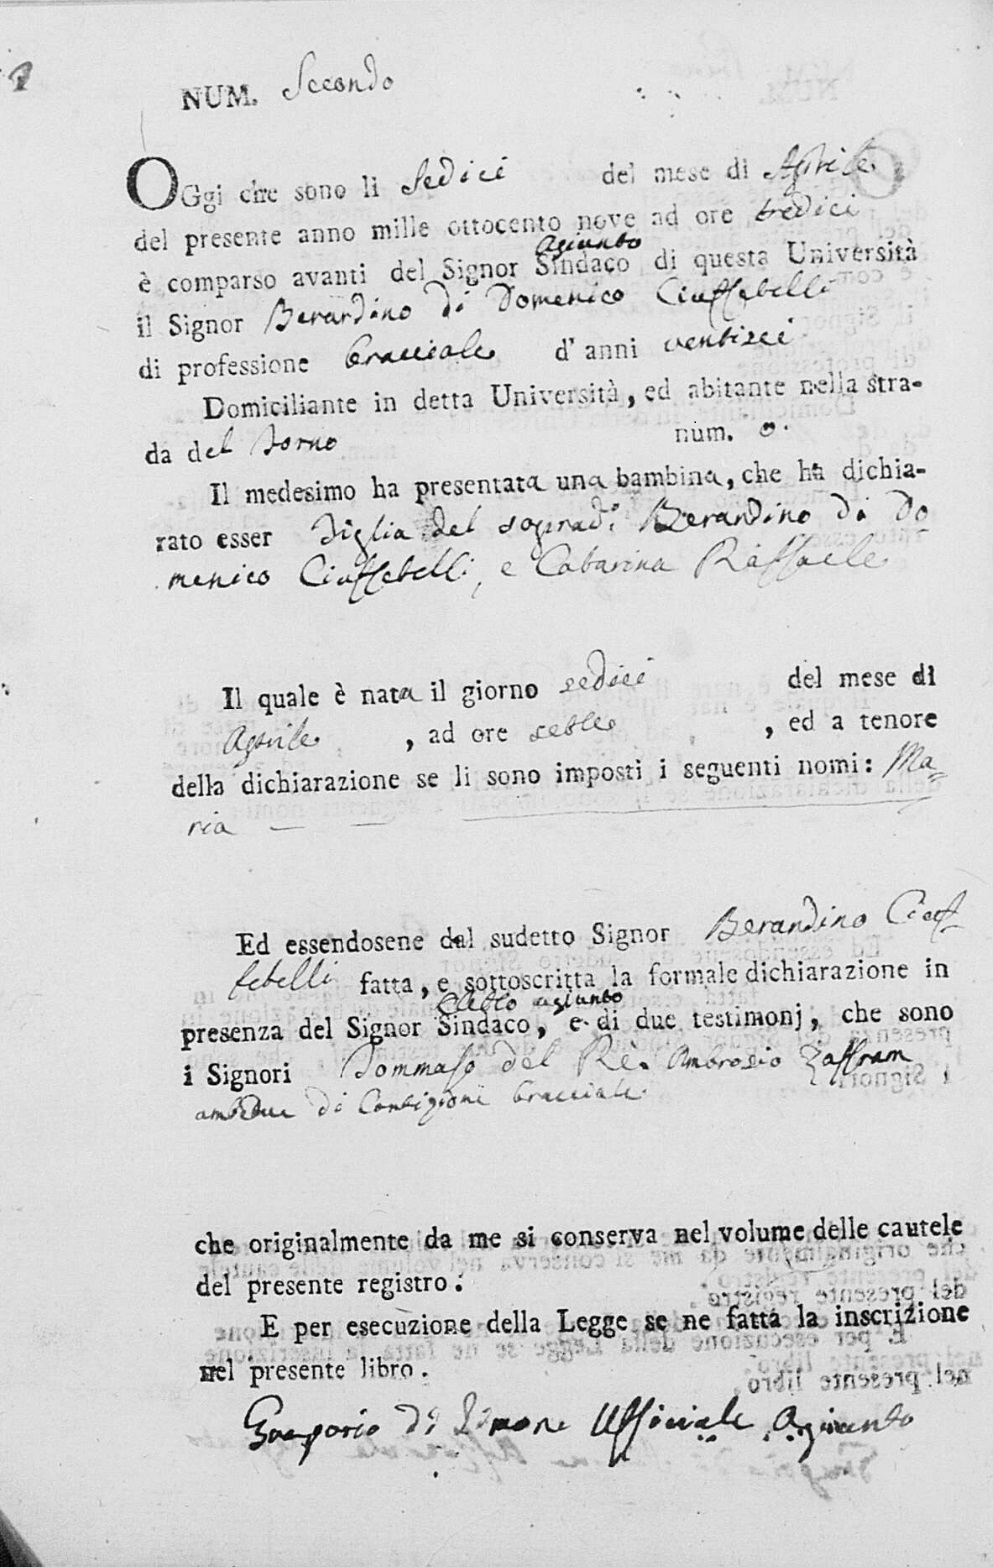 NUM. Secondo
OGgi che sono li Sedici del mese di Aprile
del presente anno mille ottocento nove ad ore tredici
agiunto
è comparso avanti del Signor Sindaco di questa Università
il Signor Berardino di Domenico Ciaffebelli
di professione bracciale d' anni ventisei
Domiciliante in detta Università, ed abitante nella stra-
da del Forno num. 0.
Il medesimo ha presentata una bambina, che ha dichia-
rato esser Figlia del sopradi Berardino di Do
menico Ciaffebelli, e Catarina Raffaele
Il quale è nata il giorno sedici del mese di
Aprile, ad ore sette, ed a tenore
della dichiarazione se li sono imposti i seguenti nomi: Ma=
ria
Ed essendosene dal sudetto Signor Berardino Ciaf-
febelli fatta, e sottoscritta la formale dichiarazione in
Eletto agiunto
presenza del Signor Sindaco, e di due testimonj, che sono
i Signori Tommaso del Rè. Ambrosio
ambedue di Condizione bracciale
che originalmente da me si conserva nel volume delle cautele
del presente registro.
E per esecuzione della Legge se ne fatta la inscrizione
nel presente libro.
Gregorio di Simone Ufficiale Agiunto